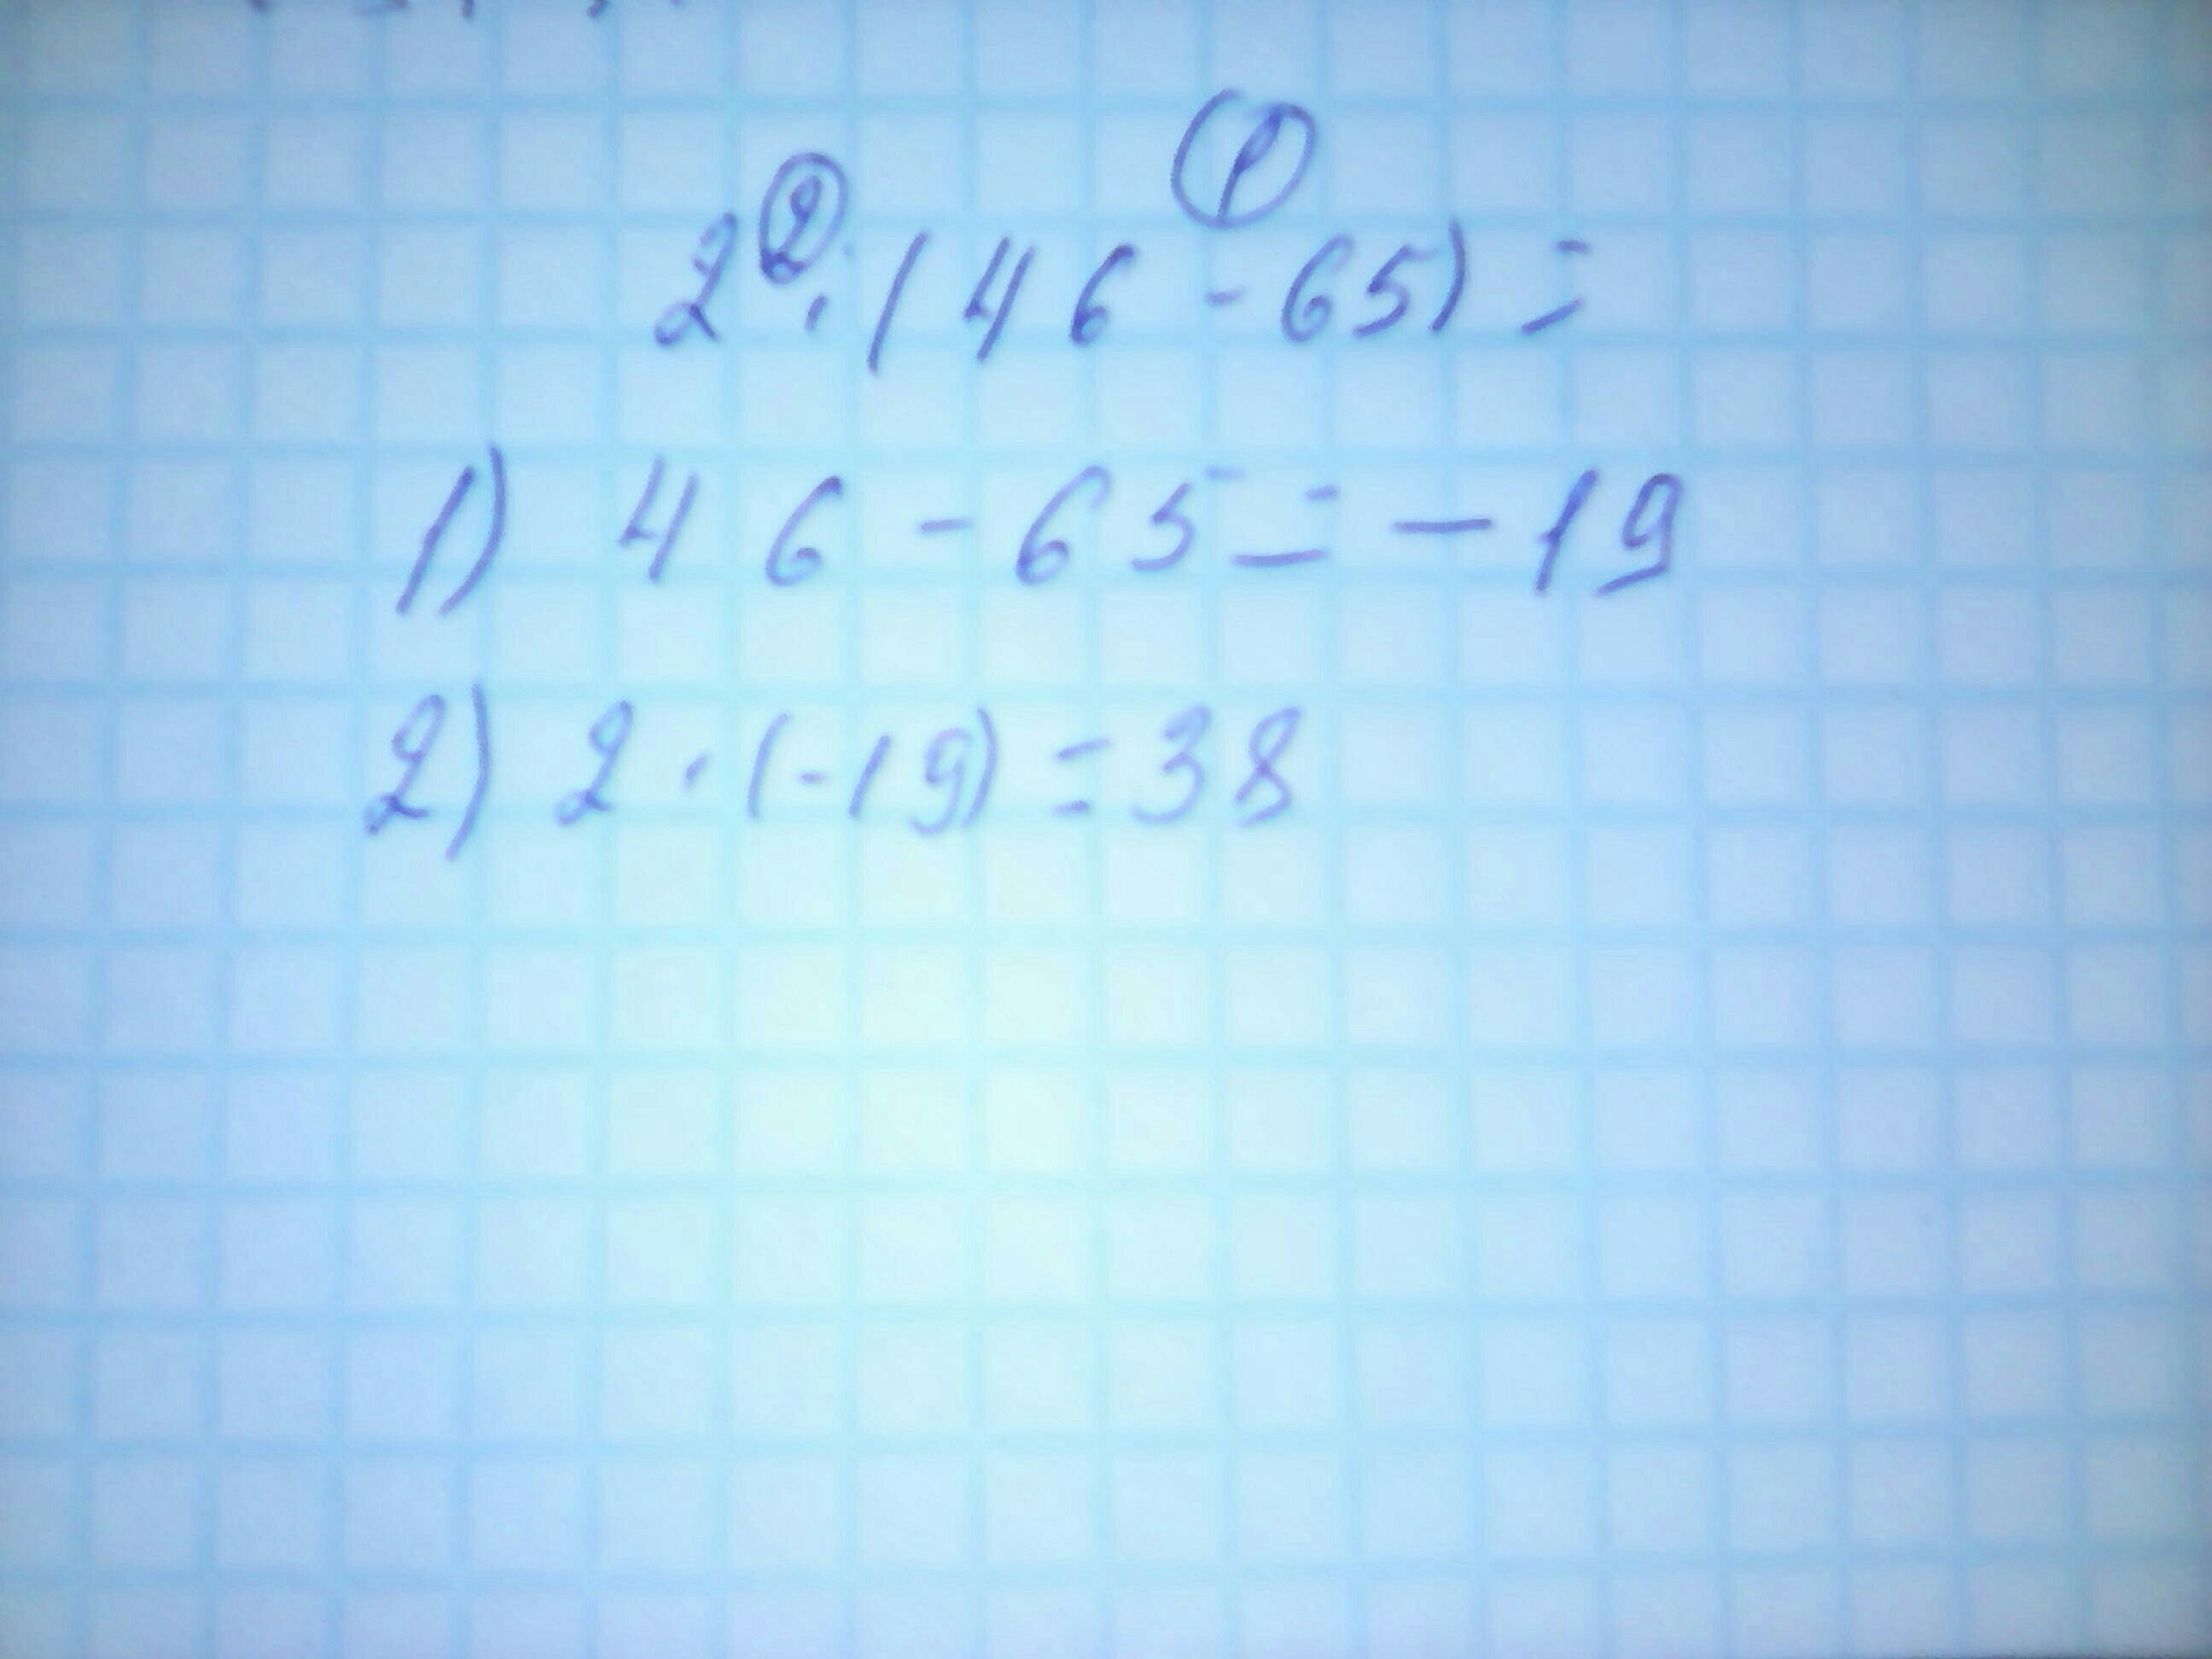 ② ①
2 · (46 - 65) =
1) 46 - 65 = - 19
2) 2 · (-19) = 38